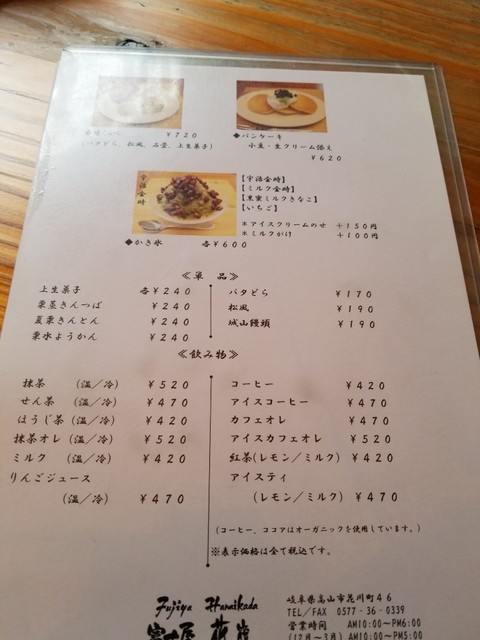 ¥720
(バタどら、松風、石畳、上生菓子)
◆パンケーキ
小豆・生クリーム添え
¥620
宇治金時
◆かき氷 各¥600
【宇治金時】
【ミルク金時】
【黒蜜ミルクきなこ】
【いちご】
*アイスクリームのせ +150円
*ミルクがけ +100円
≪単 品≫
上生菓子 各¥240
栗昼きんつば ¥240
夏栗きんとん ¥240
栗水ようかん ¥240
バタどら ¥170
松風 ¥190
城山饅頭 ¥190
≪飲み物≫
抹茶 (温/冷) ¥520
せん茶 (温/冷) ¥470
ほうじ茶(温/冷) ¥420
抹茶オレ(温/冷) ¥520
ミルク (温/冷) ¥420
りんごジュース
(温/冷) ¥470
コーヒー ¥420
アイスコーヒー ¥470
カフェオレ ¥470
アイスカフェオレ ¥520
紅茶(レモン/ミルク) ¥420
アイスティ
(レモン/ミルク) ¥470
(コーヒー、ココアはオーガニックを使用しています。)
※表示価格は全て税込です。
Fujiya Hanaikada
富士屋 花筏
岐阜県高山市花川町46
TEL/FAX 0577-36-0339
営業時間 AM10:00~PM6:00
(12月~3月) AM10:00~PM5:00